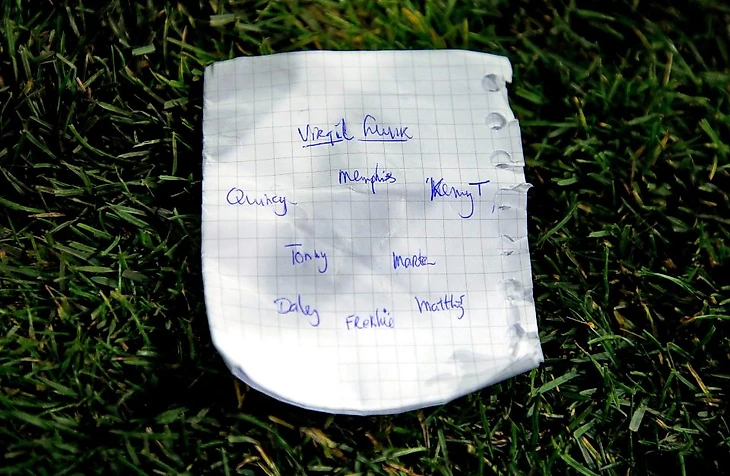 Virgil Luuk
Memphis
Quincy Kenny T,
Tonny Marten
Daley Frenkie Matthijs